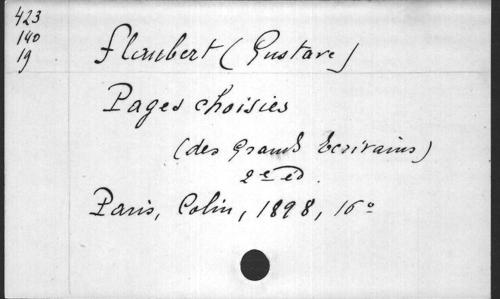 423
140
19
Flaubert (Gustave)
Pages choisies
(des Grands Ecrivains)
2e éd.
Paris, Colin, 1898, 16°